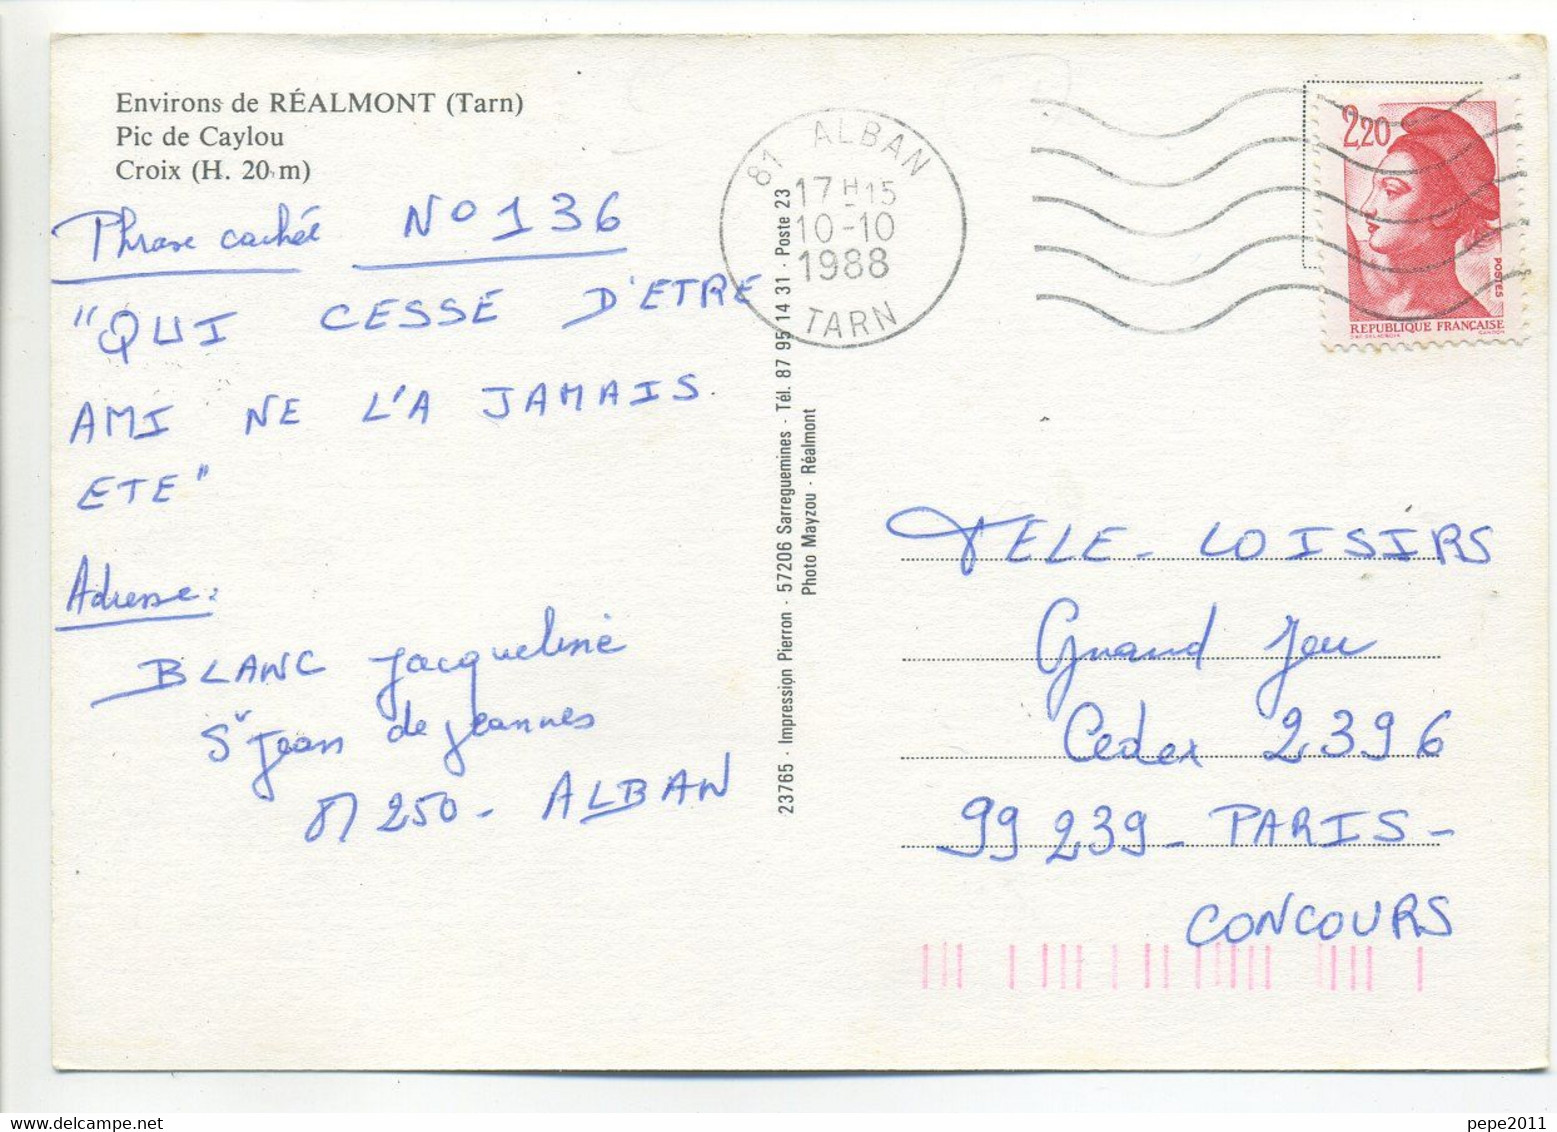 Environs de RÉALMONT (Tarn)
Pic de Caylou
Croix (H. 20 m)
Phrase cachée N° 136
"QUI CESSE D'ETRE
AMI NE L'A JAMAIS
ETE"
Adresse:
BLANC Jacqueline
St Jean de Jeannes
81250 - ALBAN
23765 · Impression Pierron · 57206 Sarreguemines · Tél. 87 95 14 31 · Poste 23
Photo Mayzou · Réalmont
81 ALBAN
17H15
10-10
1988
TARN
2,20
POSTES
REPUBLIQUE FRANÇAISE
TELE-LOISIRS
Grand Jeu
Cedex 2396
99239-PARIS-
CONCOURS
pepe2011